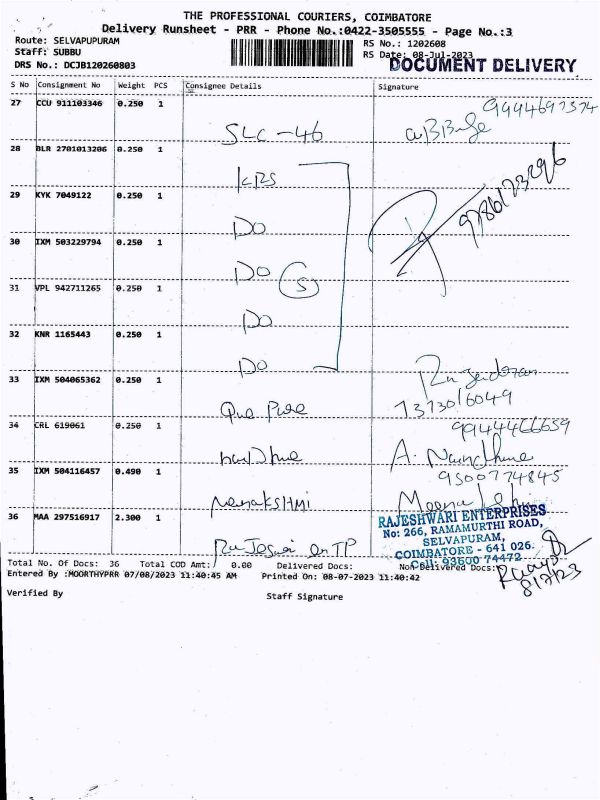 THE PROFESSIONAL COURIERS, COIMBATORE
Delivery Runsheet - PRR - Phone No.:0422-3505555 - Page No.:3
Route: SELVAPUPURAM
RS No.: 1202608
Staff: SUBBU
RS Date: 08-Jul-2023
DRS No.: DCJB120260803
DOCUMENT DELIVERY
S No Consignment No Weight PCS Consignee Details Signature
27 CCU 911103346 0.250 1
SLC-46 9944697374
28 BLR 2701013206 0.250 1
KRS
29 KYK 7049122 0.250 1
DO 9786173296
30 IXM 503229794 0.250 1
DO (5)
31 VPL 942711265 0.250 1
DO
32 KNR 1165443 0.250 1
DO
33 IXM 504065362 0.250 1
7373016049
34 CRL 619061 0.250 1
9944466659
A.
35 IXM 504116457 0.490 1
9500774845
36 MAA 297516917 2.300 1
RAJESHWARI ENTERPRISES
No: 266, RAMAMURTHI ROAD,
SELVAPURAM,
COIMBATORE - 641 026.
Cell: 93600 74472
8/7/23
Total No. Of Docs: 36 Total COD Amt: 0.00 Delivered Docs: Non-Delivered Docs:
Entered By :MOORTHYPRR 07/08/2023 11:40:45 AM Printed On: 08-07-2023 11:40:42
Verified By Staff Signature